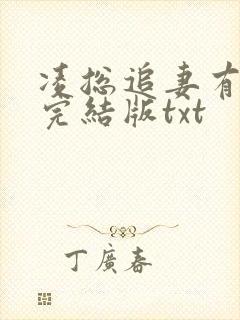 凌总追妻有
完結版txt
丁廣春